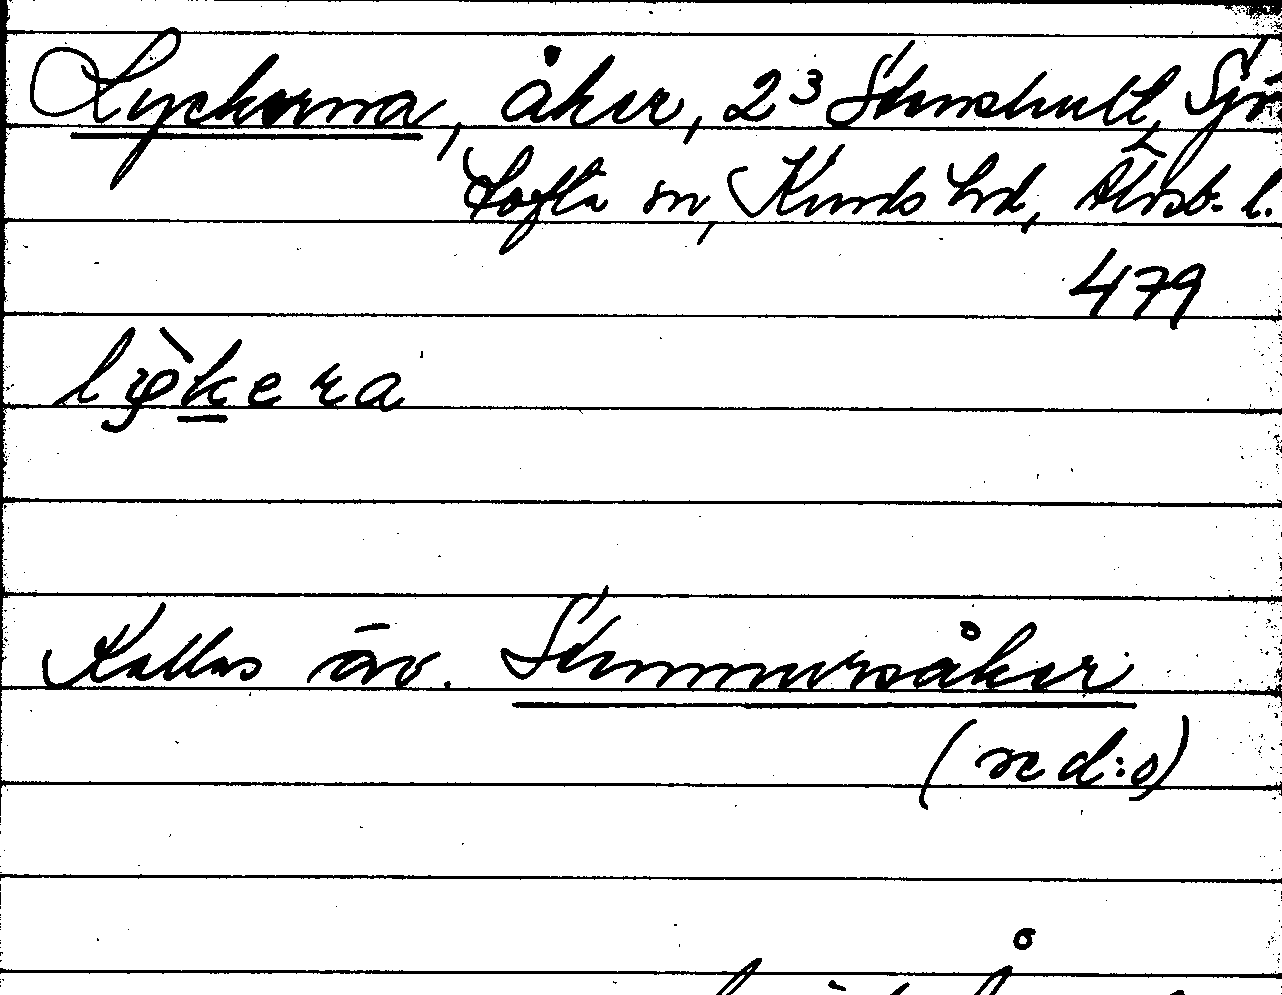 Lyckerna, åker, 2³ Stenshult, Sjö
tofta sn, Kinds hd, Älvsb. l.
479
lỳkera
Kallas äv. Stommersåker
(se d:o)